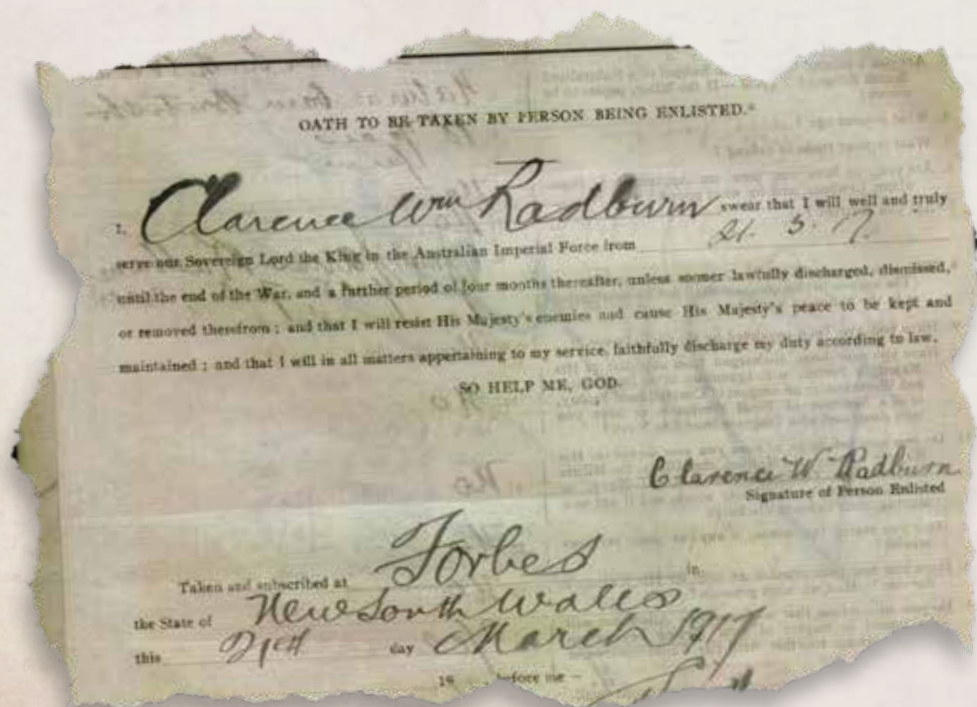 OATH TO BE TAKEN BY PERSON BEING ENLISTED.*
I, Clarence Wm Radburn swear that I will well and truly
serve our Sovereign Lord the King in the Australian Imperial Force from 21. 3. 17.
until the end of the War, and a further period of four months thereafter, unless sooner lawfully discharged, dismissed,
or removed therefrom ; and that I will resist His Majesty's enemies and cause His Majesty's peace to be kept and
maintained ; and that I will in all matters appertaining to my service, faithfully discharge my duty according to law.
SO HELP ME, GOD.
Clarence W Radburn
Signature of Person Enlisted
Taken and subscribed at Forbes in
the State of New South Wales
this 21st day March 1917
19 before me —